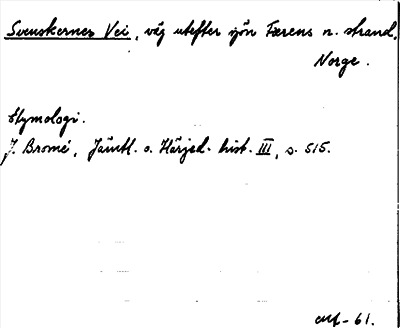 Svenskernes Vei, väg utefter sjön Færens n. strand,
Norge.
Etymologi.
J. Bromé, Jämtl. o. Härjed. hist. III, s. 515.
-61.